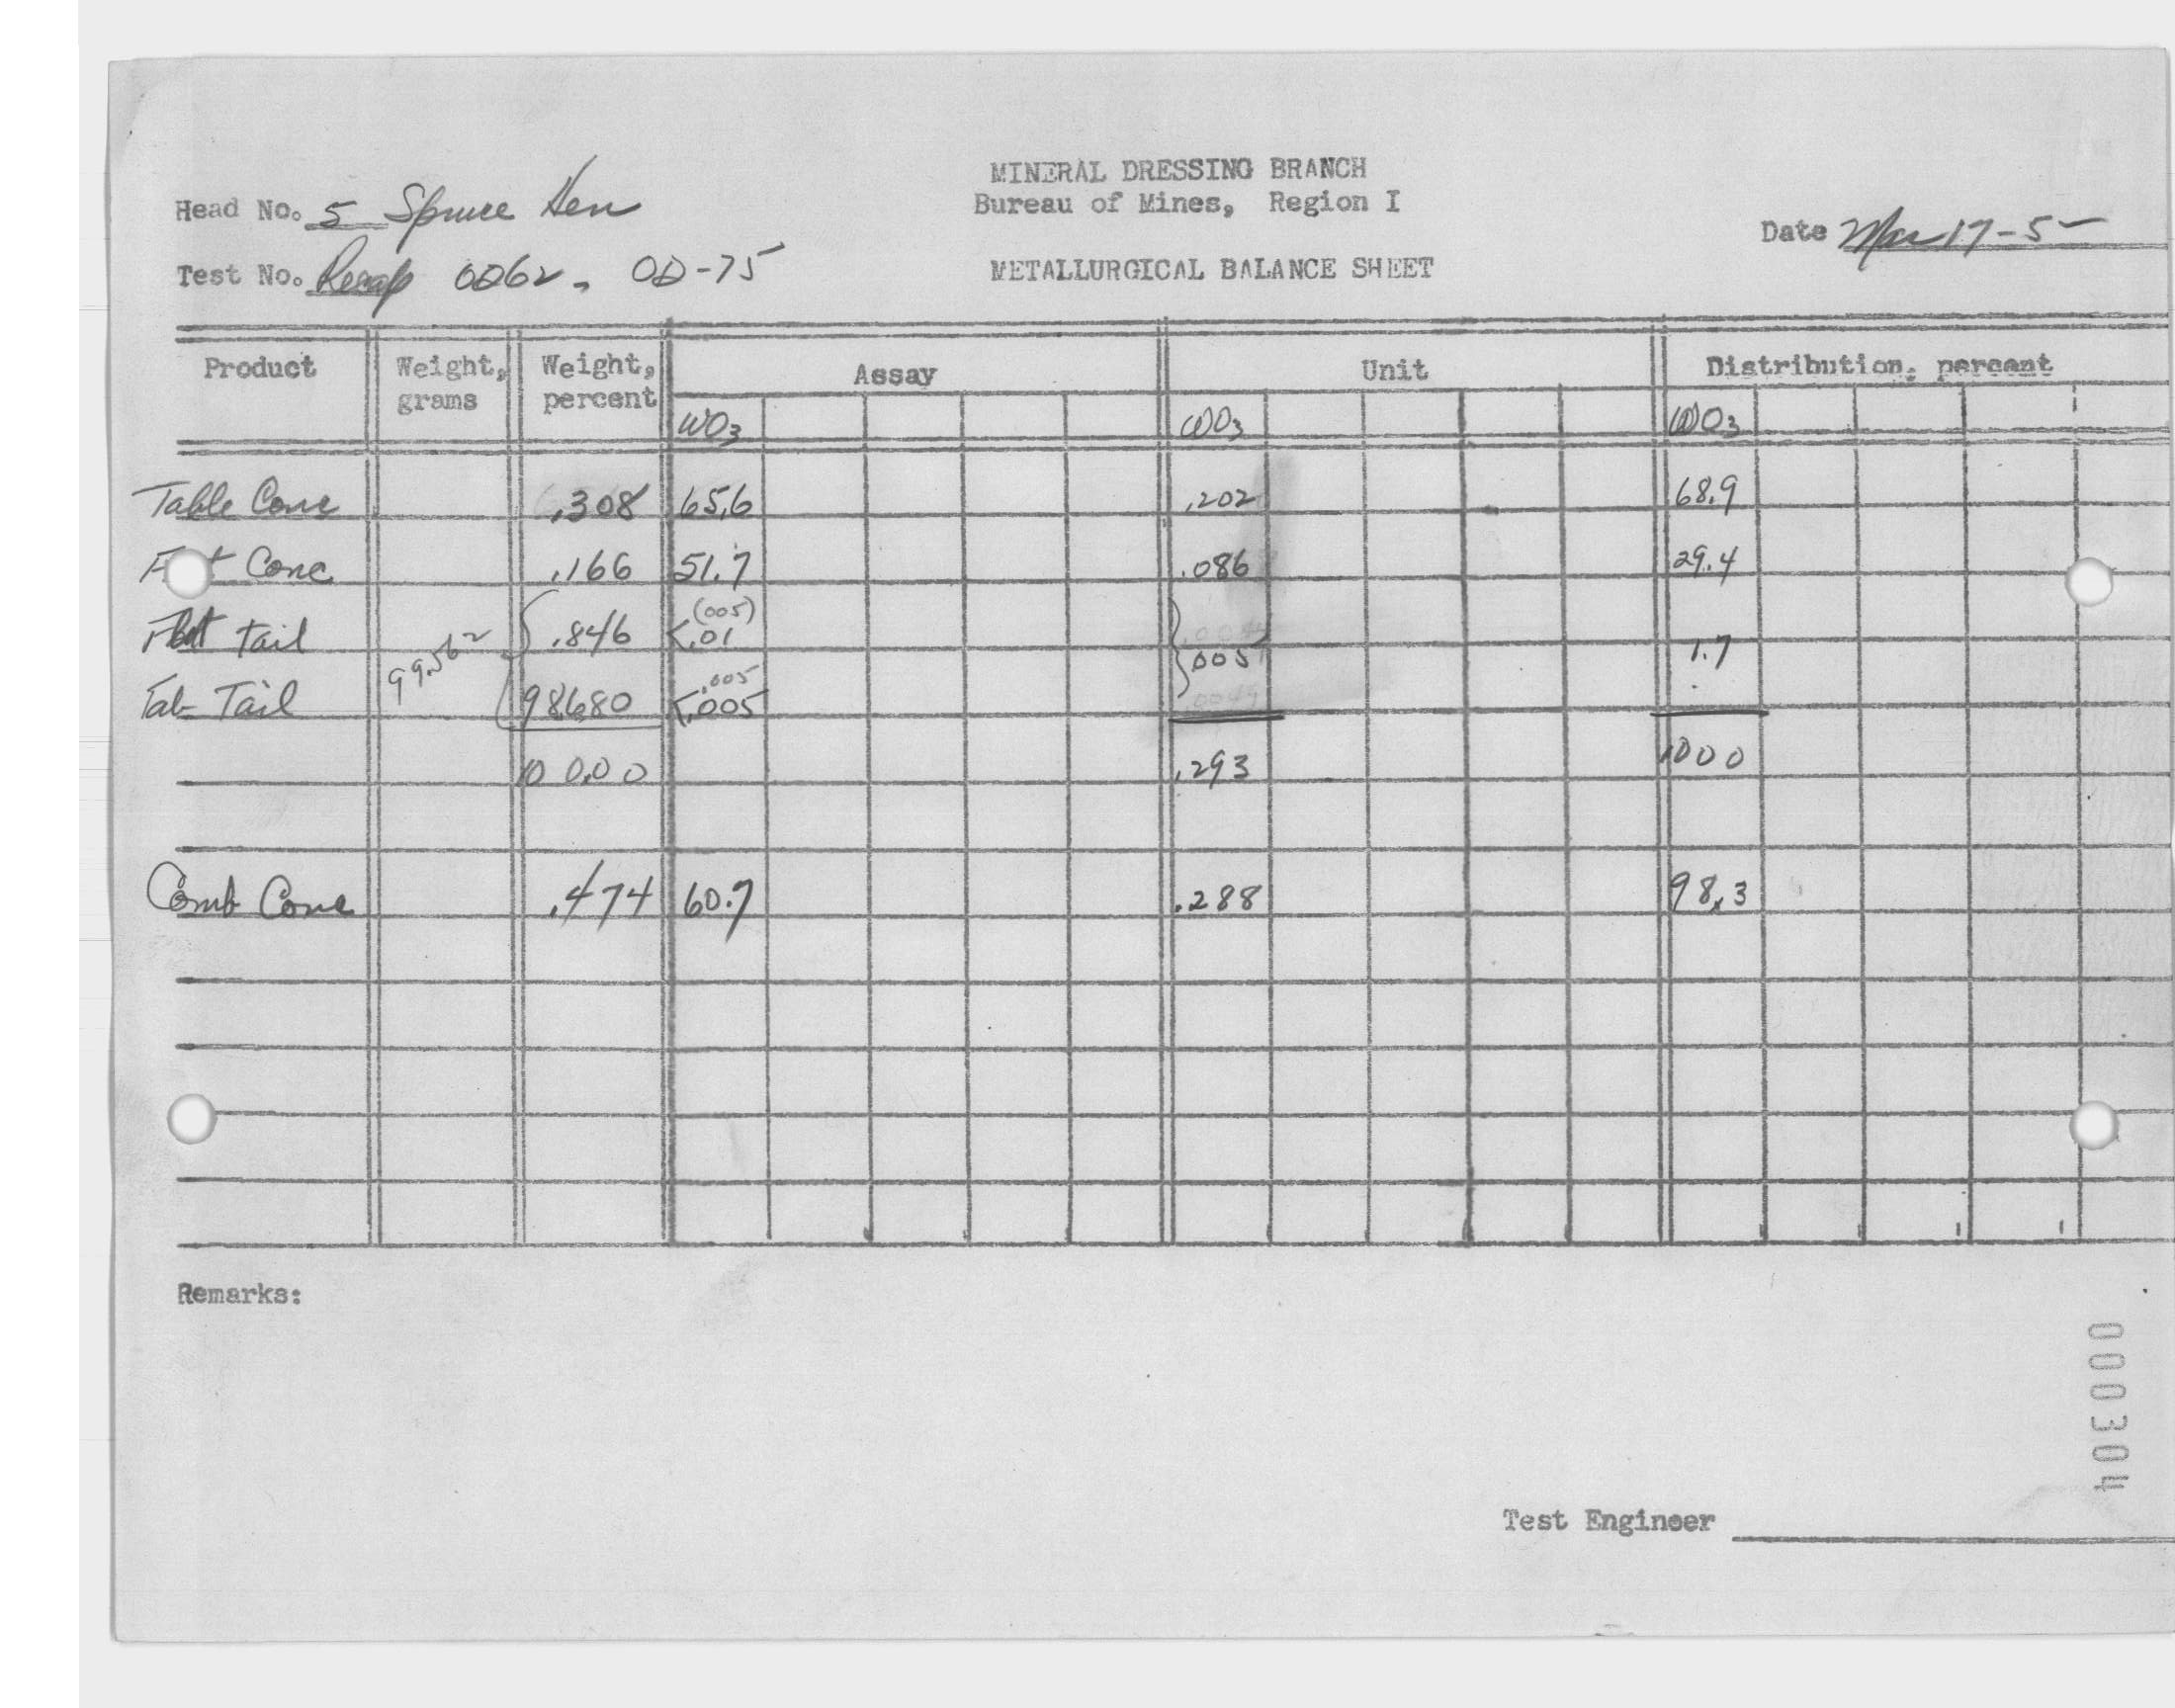 MINERAL DRESSING BRANCH
Head No. 5 Spruce Hen
Bureau of Mines, Region I
Date Mar 17-55
Test No. Recap OD62, OD-75
METALLURGICAL BALANCE SHEET
Product Weight, grams Weight, percent Assay Unit Distribution, percent
WO3 WO3 WO3
Table Conc .308 65.6 .202 68.9
Conc .166 51.7 .086 29.4
(005)
Flot Tail .846 <.01 .005 1.7
99.562
.005
Tab Tail 98.680 <.005
100.00 .293 100.0
Comb Conc .474 60.7 .288 98.3
Remarks:
000304
Test Engineer